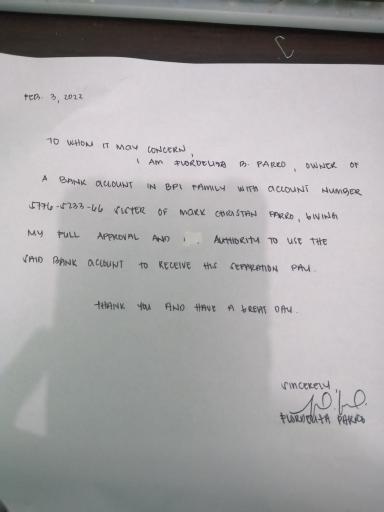 FEB. 3, 2022
TO WHOM IT MAY CONCERN,
I AM FLORDELITA B. PARRO, OWNER OF
A BANK ACCOUNT IN BPI FAMILY WITH ACCOUNT NUMBER
5776-5233-66 SISTER OF MARK CHRISTIAN PARRO, GIVING
MY FULL APPROVAL AND AUTHORITY TO USE THE
SAID BANK ACCOUNT TO RECEIVE HIS SEPARATION PAY.
THANK YOU AND HAVE A GREAT DAY.
SINCERELY,
FLORDELITA PARRO